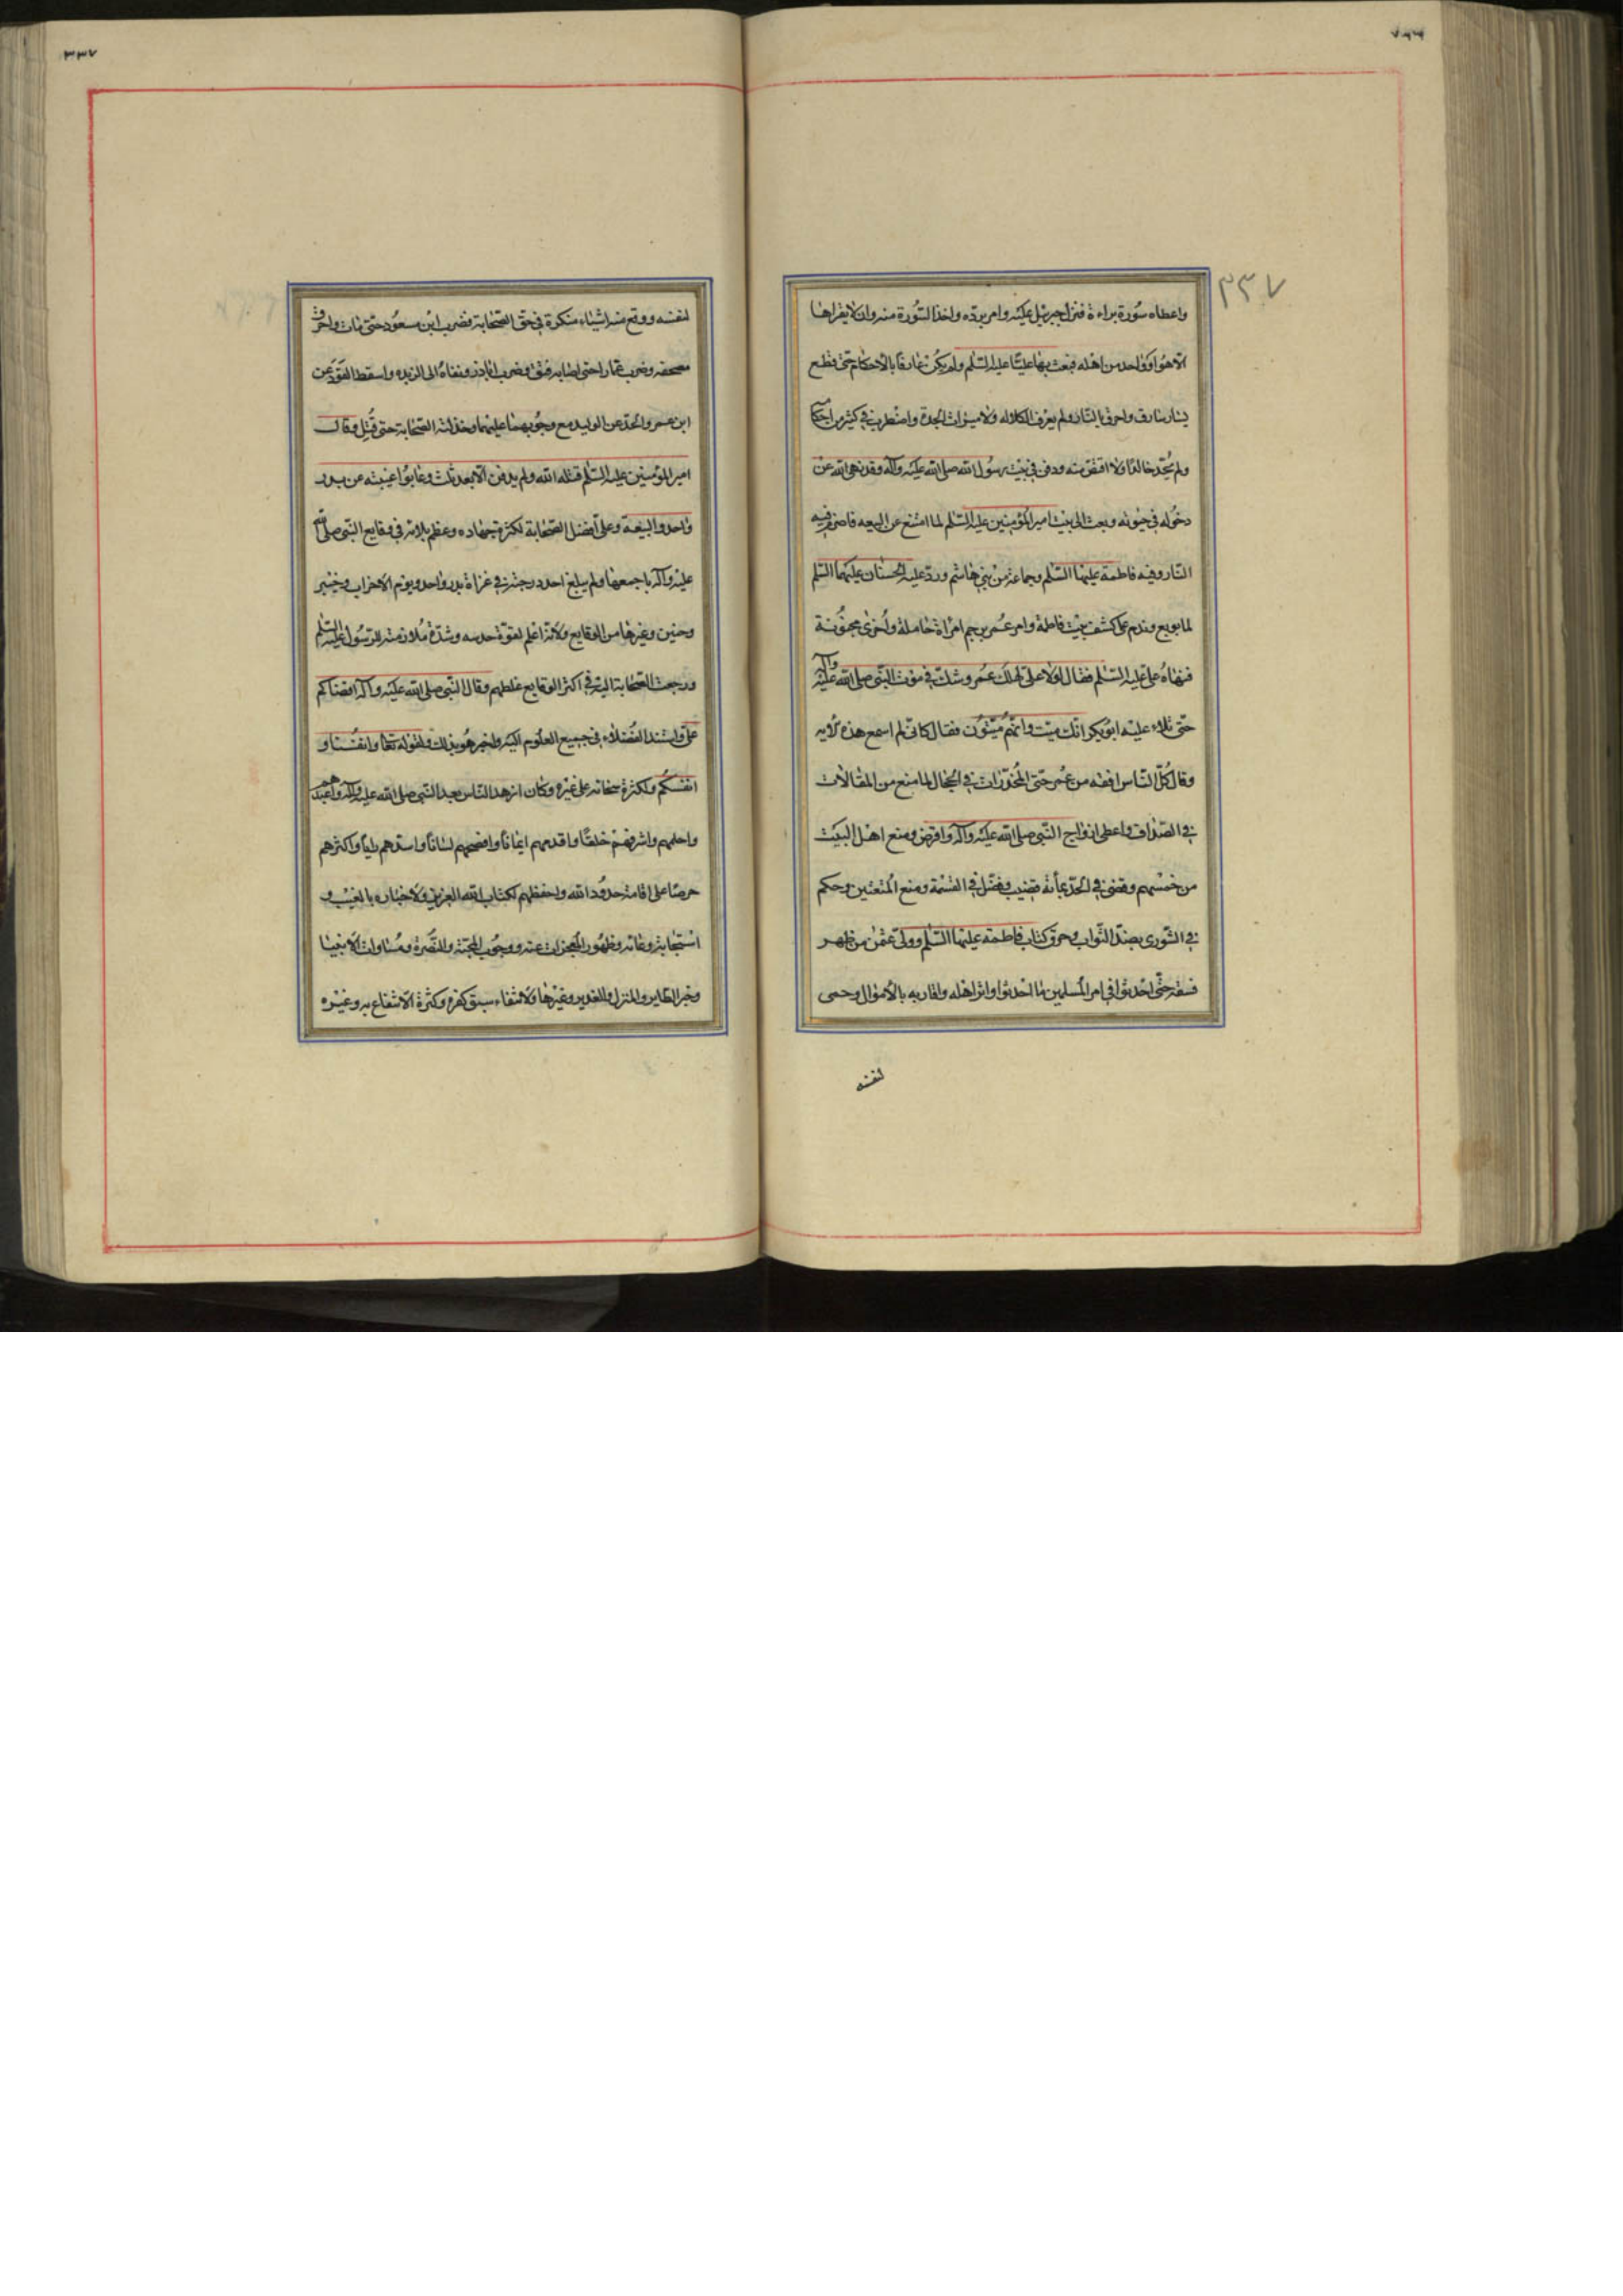 ٧٦٦
٣٣٧
واعطاه سورة براءة فنزل جبرئیل علیه وامر برده واخذ السورة منه وان لا یقراها
الا هو او واحد من اهله فبعث بها علیا علیه السلم ولم یکن عارفا بالاحکام حتی قطع
یسار سارق واحرق بالنار ولم یعرف الکلاله ولا میراث الجدة واضطرب فی کثیر من احکامه
ولم یحد خالدا ولا اقتض منه ودفن فی بیت رسول الله صلی الله علیه وآله وقد نهی الله عن
دخوله فی حیوته وبعث الی بیت امیر المؤمنین علیه السلم لما امتنع عن البیعه فاضرم فیه
النار وفیه فاطمة علیها السلم وجماعة من بنی هاشم ورد علیه الحسنان علیهما السلم
لما بویع وندم علی کشف بیت فاطمة وامر عمر برجم امراة حاملة واخری مجنونة
فنهاه علی علیه السلم فقال لولا علی لهلک عمر وشک فی موت النبی صلی الله علیه وآله
حتی تلاء علیه ابو بکر انک میت وانهم میتون فقال کانی لم اسمع هذه الایه
وقال کل الناس افقه من عمر حتی المخدرات فی الحجال لما منع من المقالات
فی الصداق واعطی ازواج النبی صلی الله علیه وآله واقرض ومنع اهل البیت
من خمسهم وقضی فی الحد بمأئة قضیب وفضل فی القسمة ومنع المتعتین وحکم
فی الشوری بضد الثواب وحرق کتاب فاطمة علیها السلم وولی عثمن من ظهر
فسقه حتی احدثوا فی امر المسلمین ما احدثوا واثر اهله واقاربه بالاموال وحمی
لنفسه
لنفسه ووقع منه اشیاء منکرة فی حق الصحابة فضرب ابن مسعود حتی مات واحرق
مصحفه وضرب عمار احتی اصابه فتق وضرب اباذر ونفاه الی الربذه واسقط القود عن
ابن عمر والحد عن الولید مع وجوبهما علیهما وخذلته الصحابة حتی قتل وقال
امیر المؤمنین علیه السلم قتله الله ولم یدفن الا بعد ثلث وعابوا غیبته عن بدر
واحد والبیعة وعلی افضل الصحابة لکثرة جهاده وعظم بلائه فی وقایع النبی صلی الله
علیه وآله باجمعها ولم یبلغ احد درجته فی غزاة بدر واحد ویوم الاحزاب وخیبر
وحنین وغیرها من الوقایع ولانه اعلم لقوة حدسه وشدة ملازمته للرسول علیه السلم
ورجعت الصحابة الیه فی اکثر الوقایع غلطهم وقال النبی صلی الله علیه وآله اقضاکم
علی واستند الفضلاء فی جمیع العلوم الیه واخبر هو بذلک ولقوله تعا وانفسنا و
انفسکم ولکثرة سخائه علی غیره وکان ازهد الناس بعد النبی صلی الله علیه وآله واعبدهم
واحلمهم واشرفهم خلقا واقدمهم ایمانا وافصحهم لسانا واسدهم رایا واکثرهم
حرصا علی اقامة حدود الله واحفظهم لکتاب الله العزیز ولاخباره بالغیب و
استجابة دعائه وظهور المعجزات عنه ووجوب المحبة والنصرة ومساوات الانبیا
وخبر الطایر والمنزل والغدیر وغیرها ولانتفاء سبق کفره وکثرة الانتفاع به وغیره
٣٣٧